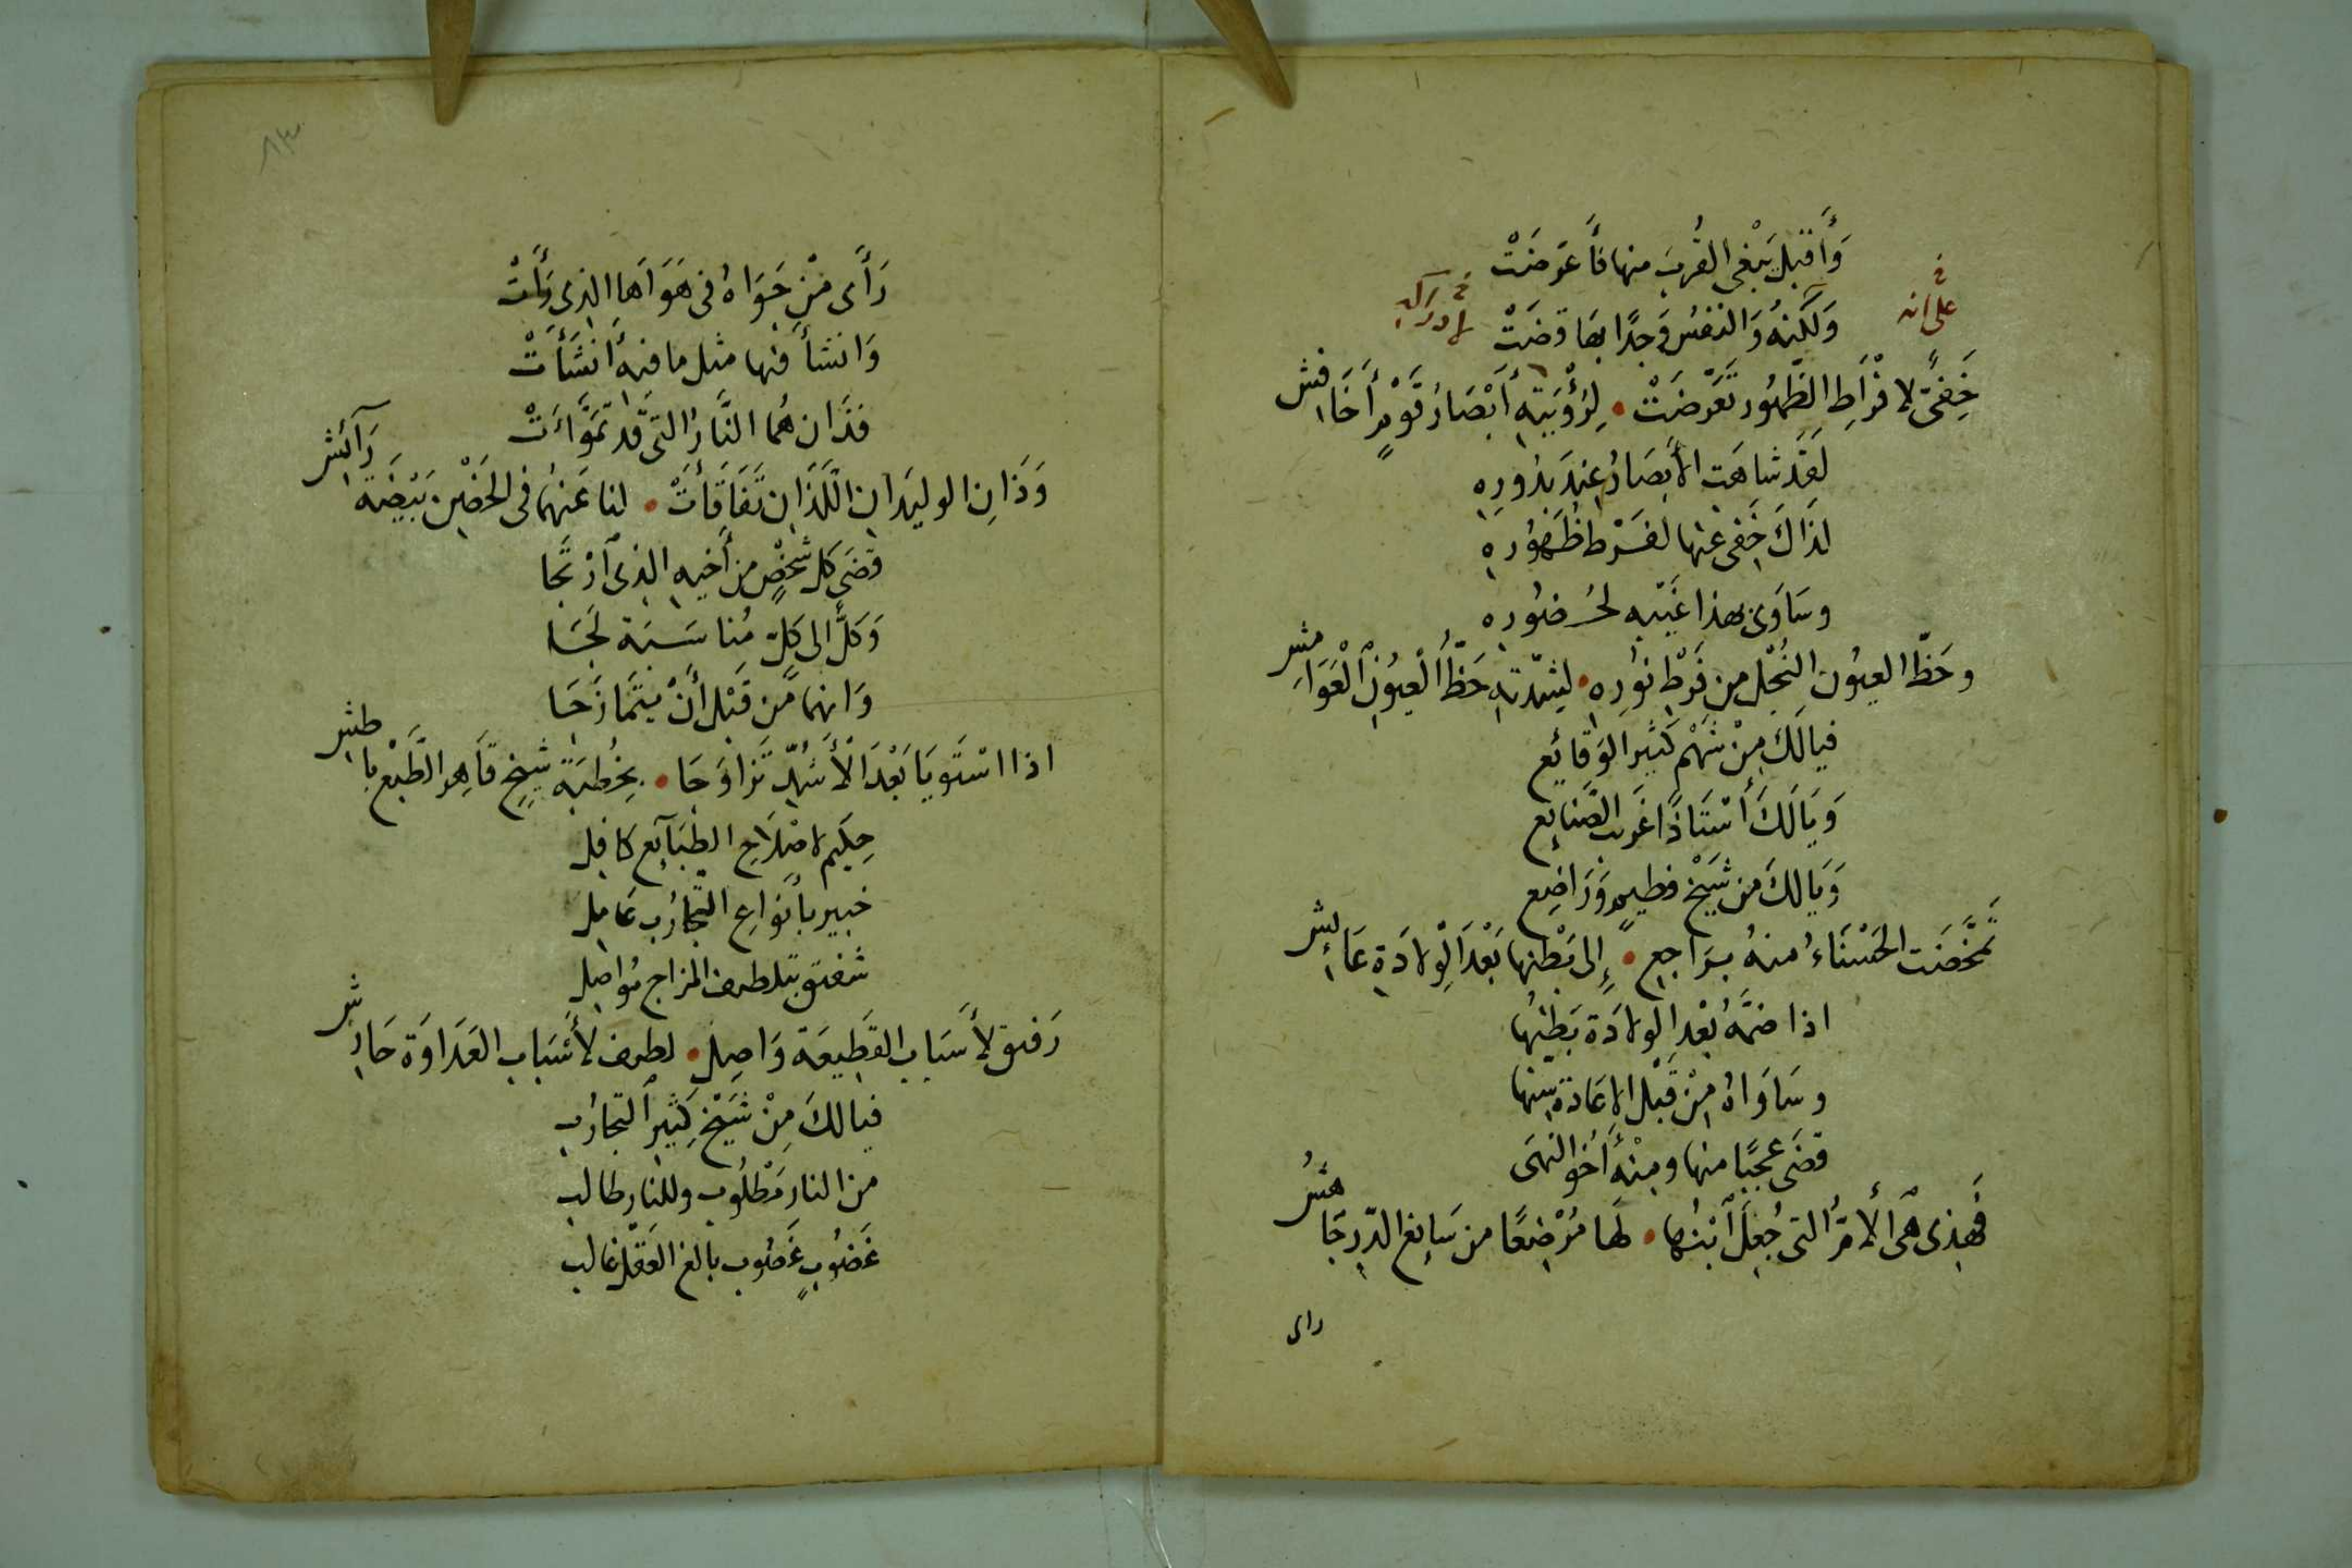 وَأَقْبَلَ يَبْغِى القُربَ منها فَأَعْرَضَتْ
فى
على انه
وَلَكِنهُ وَالنَفسُ وَجدًا بها قضَتْ
لادراك
خَفِىٌّ لافْرَاطِ الظُّهُور تَعَرَّضَتْ • لِرُؤْيَتِهِ أَبْصَارُ قَوْمٍ أَخَافش
لَقَد شاهَت الأَبصَارُ عِندَ بدُورِه
لذَاكَ خَفى عنها لفَرْط ظُهُوره
وسَاوى بهذا غَيْبه لحُضوُره
وحَظّ العيُون النُّجْل من فَرْط نوُرِه • لشِدّتهِ حَظُّ الْعيوُنِ الْعَوَامش
فيالَكَ مِنْ شَهْم كَثيَر الوَقائِع
وَيَالَكَ أُسْتَاذًا غَريب الصَّنايَع
وَيَالكَ من شَيْخ فطيمٍ وَرَاضِع
تَمَخَّضَت الحَسْنَاءُ منهُ برَاجِعٍ • إِلى بَطْنِها بَعْدَ الْوِلادَةِ عَائش
اذا ضمَّهُ بَعْد الولادَة بَطنُها
وسَاوَاهُ مِنْ قَبْل الاعَادة سِنّها
قضَى عجَبًا منها ومِنْهُ أَخو النهَى
فَهذِى هِىَ الأُمُّ التى جُعِلَ ابْنُها • لَها مُرْضِعًا من سَايغ الدّرّ جَاهش
راى
رَأَى مِنْ جَوَاهُ فى هَوَاهَا الذى رَأَتْ
وَانشأ فيها مثل ما فيهِ أَنشَأَتْ
فذَان هُما النَّارُ التى قَد تَهَوَّاءَتْ
وَذَانِ الوليدَانِ اللَّذَان تَفَاقَأَتْ • لنا عَنهُما فى الحَضْن بَيْضَة رَآئش
قضَى كل شخصٍ من أَخيه الذى ارْتجَا
وَكلٌّ الى كلّ مُناسَبَة لَجَا
وَانهما من قَبْل أَنْ يتَمَازَجَا
اذا اسْتَوَيَا بَعْدَ الأَشُدّ تَزَاوَجَا • بخُطبَة شيْخ قَاهر الطَّبْع باطش
حِكَيم لاصْلاَحِ الطبَآيِع كافِل
خبير بأَنوَاعِ التجَّارُب عَامِل
شفيق بتلطيف المزاج مُواصِل
رَفيق لأَسبَاب القَطيعَة وَاصِل • لطيف لأَسبَاب العَدَاوَة حَارش
فيالكَ مِنْ شَيْخ كِثير التجارُب
من النار مَطْلوُب وللنارِ طالب
غَضوُبٍ غَصُوب بالغ العَقل غالب